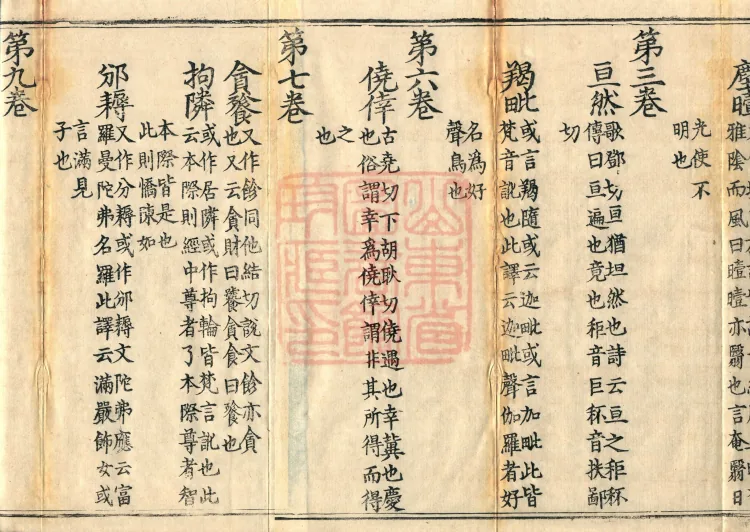 塵曀
雅陰而風曰曀曀亦翳也言奄翳日
光使不
明也
第三卷
亘然歌鄧切亘猶坦然也詩云亘之秬秠
傳曰亘遍也竟也秬音巨秠音扶鄙
切
羯毗或言羯隨或云迦毗或言加毗此皆
梵音訛也此譯云迦毗聲伽羅者好
名為好
聲鳥也
第六卷
僥倖古堯切下胡耿切僥遇也幸冀也慶
也俗謂幸爲僥倖謂非其所得而得
之
也
第七卷
貪餮又作飻同他結切說文飻亦貪
也又云貪財曰饕貪食曰餮也
拘隣或作居隣或作拘輪皆梵言訛也此
云本際則經中尊者了本際尊者智
本際皆是也
此則憍陳如
邠耨又作分耨或作邠耨文陀弗應云富
羅曼陀弗名羅此譯云滿嚴飾女或
言滿見
子也
第九卷